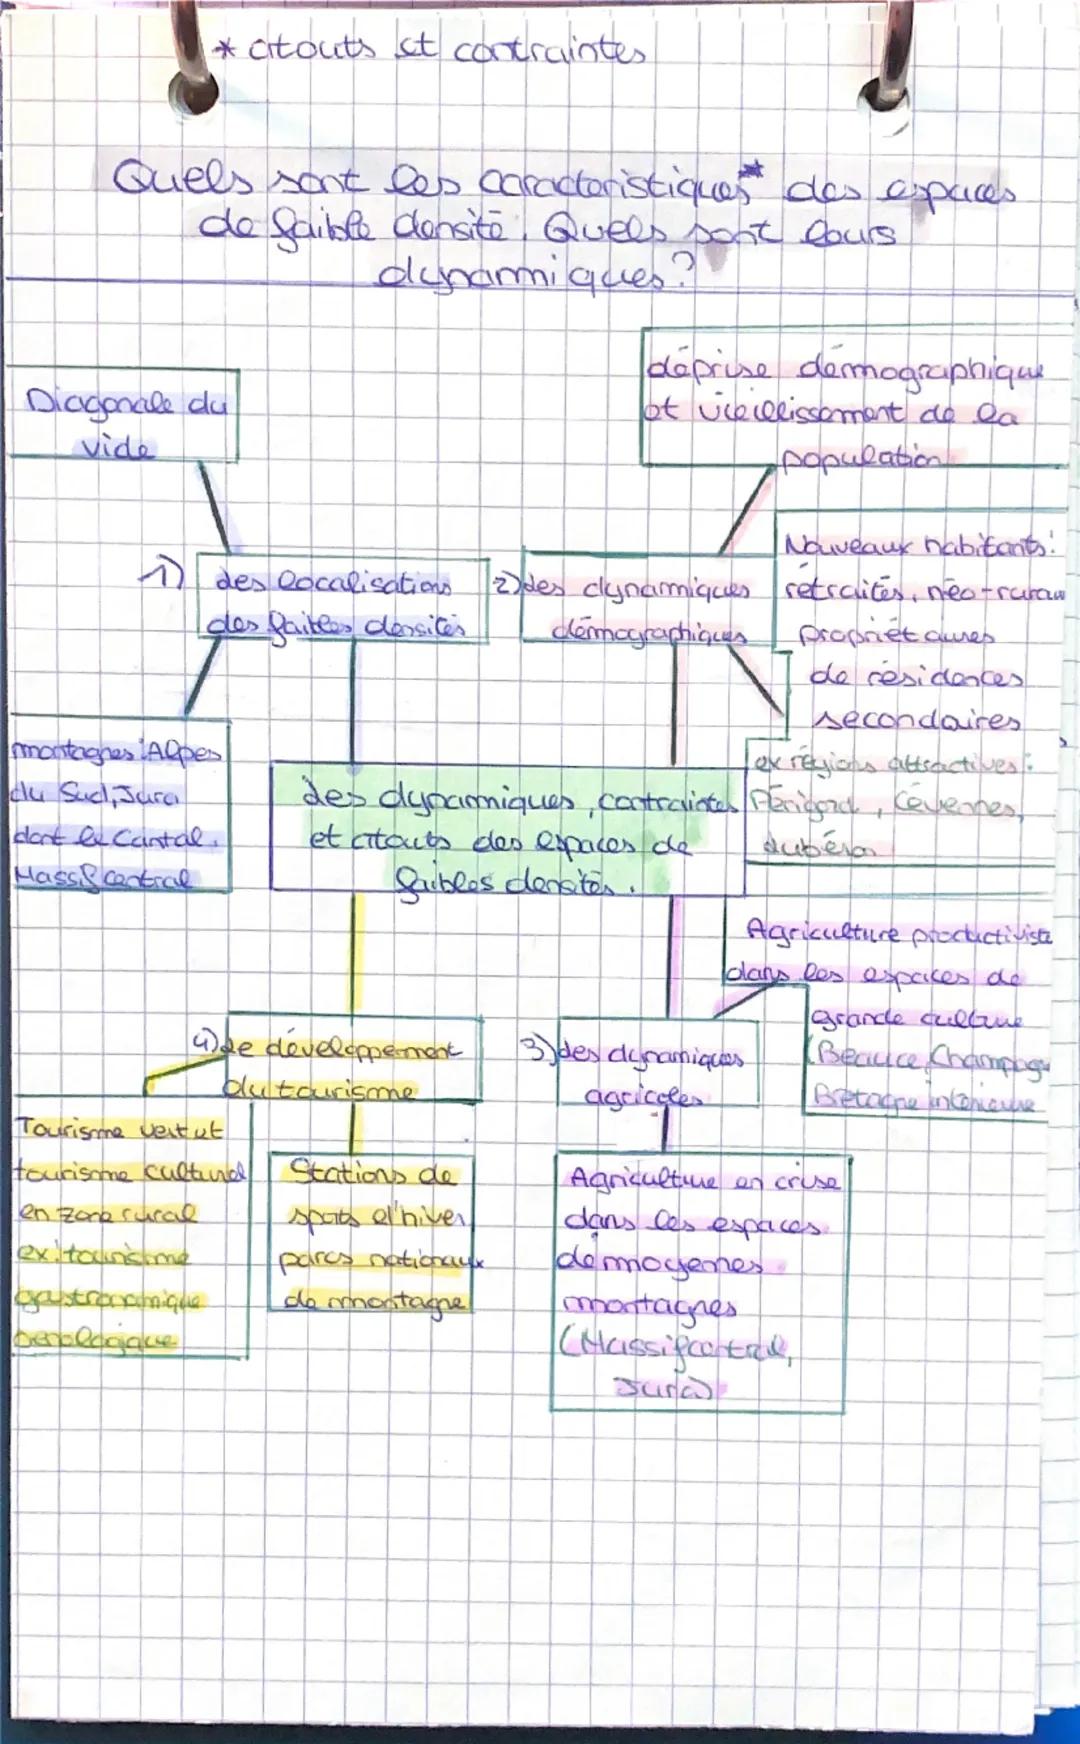 * atouts et contraintes
Quels sont les caractéristiques* des espaces
de faible densité. Quels sont leurs
dynamiques ?
Diagonale du
vide
déprise démographique
et vieillissement de la
population
1) des localisations
des faibles densités
2) des dynamiques
démographiques
Nouveaux habitants:
retraités, néo-ruraux
propriétaires
de résidences
secondaires
ex régions attractives:
Périgord, Cévennes,
Lubéron
montagnes: Alpes
du Sud, Jura
dont le Cantal,
Massif central
des dynamiques, contraintes
et atouts des espaces de
faibles densités.
Agriculture productiviste
dans les espaces de
grande culture
(Beauce, Champagne
Bretagne intérieure
4) le développement
du tourisme
3) des dynamiques
agricoles
Tourisme vert et
tourisme culturel
en zone rural
ex: tourisme
gastronomique
Stations de
sports d'hiver,
parcs nationaux
de montagne
Agriculture en crise
dans les espaces
de moyennes
montagnes
(Massif central,
Jura)